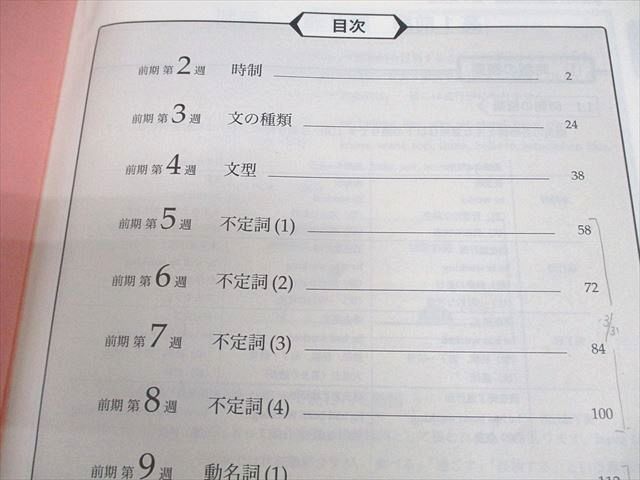 目次
前期 第2週 時制 2
前期 第3週 文の種類 24
前期 第4週 文型 38
前期 第5週 不定詞(1) 58
前期 第6週 不定詞(2) 72
3/31
前期 第7週 不定詞(3) 84
前期 第8週 不定詞(4) 100
前期 第9週 動名詞(1) 112